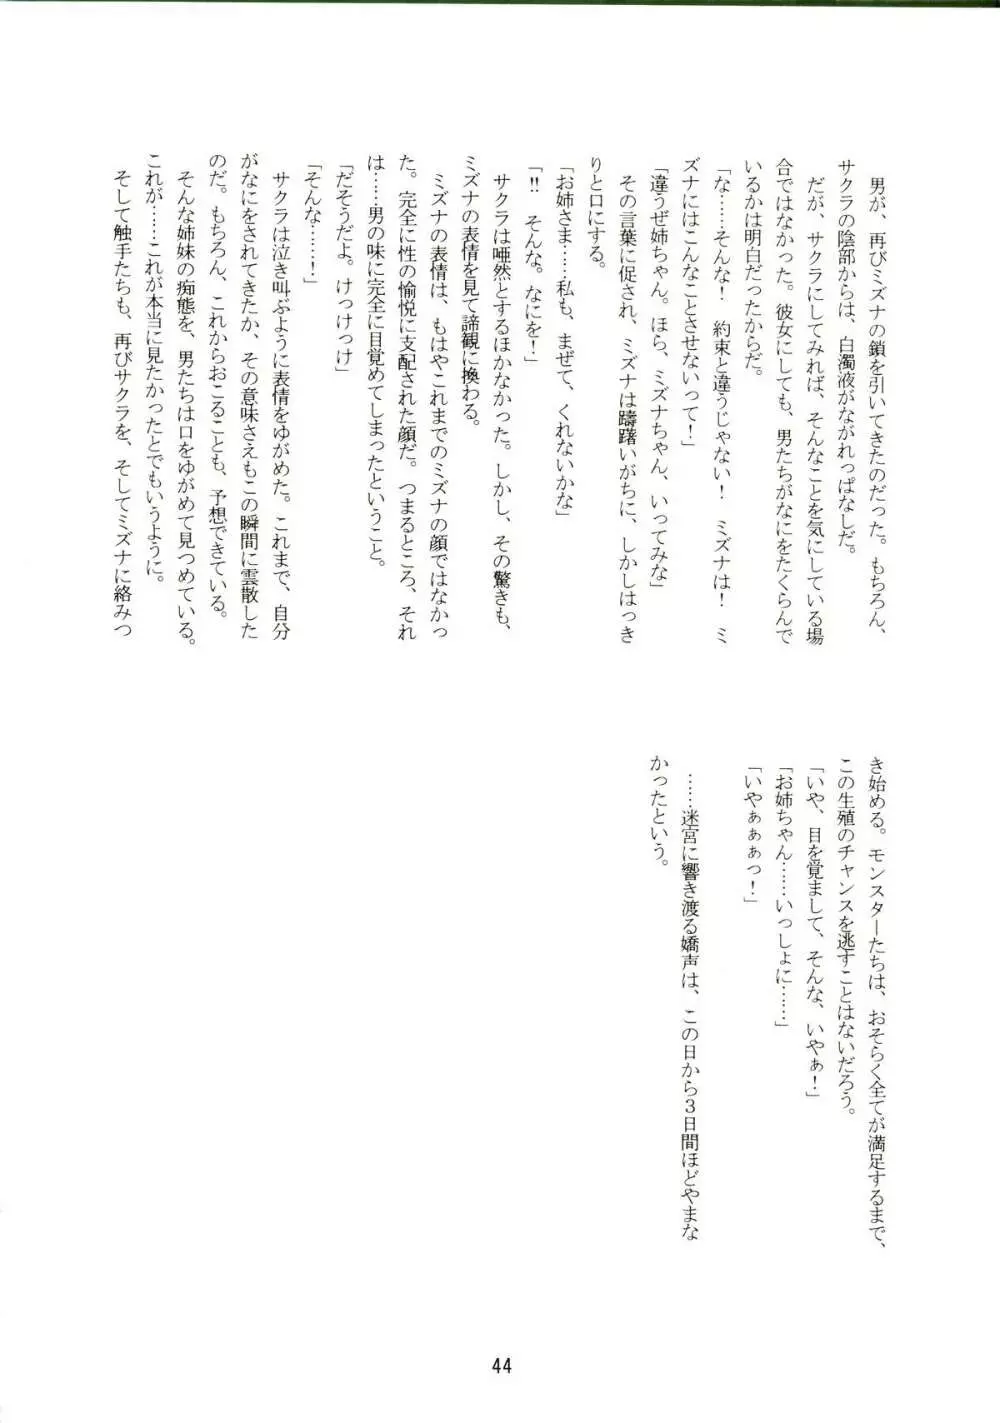 男が、再びミズナの鎖を引いてきたのだった。もちろん、
サクラの陰部からは、白濁液がながれっぱなしだ。
だが、サクラにしてみれば、そんなことを気にしている場
合ではなかった。彼女にしても、男たちがなにをたくらんで
いるかは明白だったからだ。
「な……そんな！　約束と違うじゃない！　ミズナは！　ミ
ズナにはこんなことさせないって！」
「違うぜ姉ちゃん。ほら、ミズナちゃん、いってみな」
その言葉に促され、ミズナは躊躇いがちに、しかしはっき
りと口にする。
「お姉さま……私も、まぜて、くれないかな」
「!!　そんな。なにを！」
サクラは唖然とするほかなかった。しかし、その驚きも、
ミズナの表情を見て諦観に換わる。
ミズナの表情は、もはやこれまでのミズナの顔ではなかっ
た。完全に性の愉悦に支配された顔だ。つまるところ、それ
は……男の味に完全に目覚めてしまったということ。
「だそうだよ。けっけっけ」
「そんな……！」
サクラは泣き叫ぶように表情をゆがめた。これまで、自分
がなにをされてきたか、その意味さえもこの瞬間に雲散した
のだ。もちろん、これからおこることも、予想できている。
そんな姉妹の痴態を、男たちは口をゆがめて見つめている。
これが……これが本当に見たかったとでもいうように。
そして触手たちも、再びサクラを、そしてミズナに絡みつ
き始める。モンスターたちは、おそらく全てが満足するまで、
この生殖のチャンスを逃すことはないだろう。
「いや、目を覚まして、そんな、いやぁ！」
「お姉ちゃん……いっしょに……」
「いやぁぁぁっ！」
……迷宮に響き渡る嬌声は、この日から３日間ほどやまな
かったという。
44